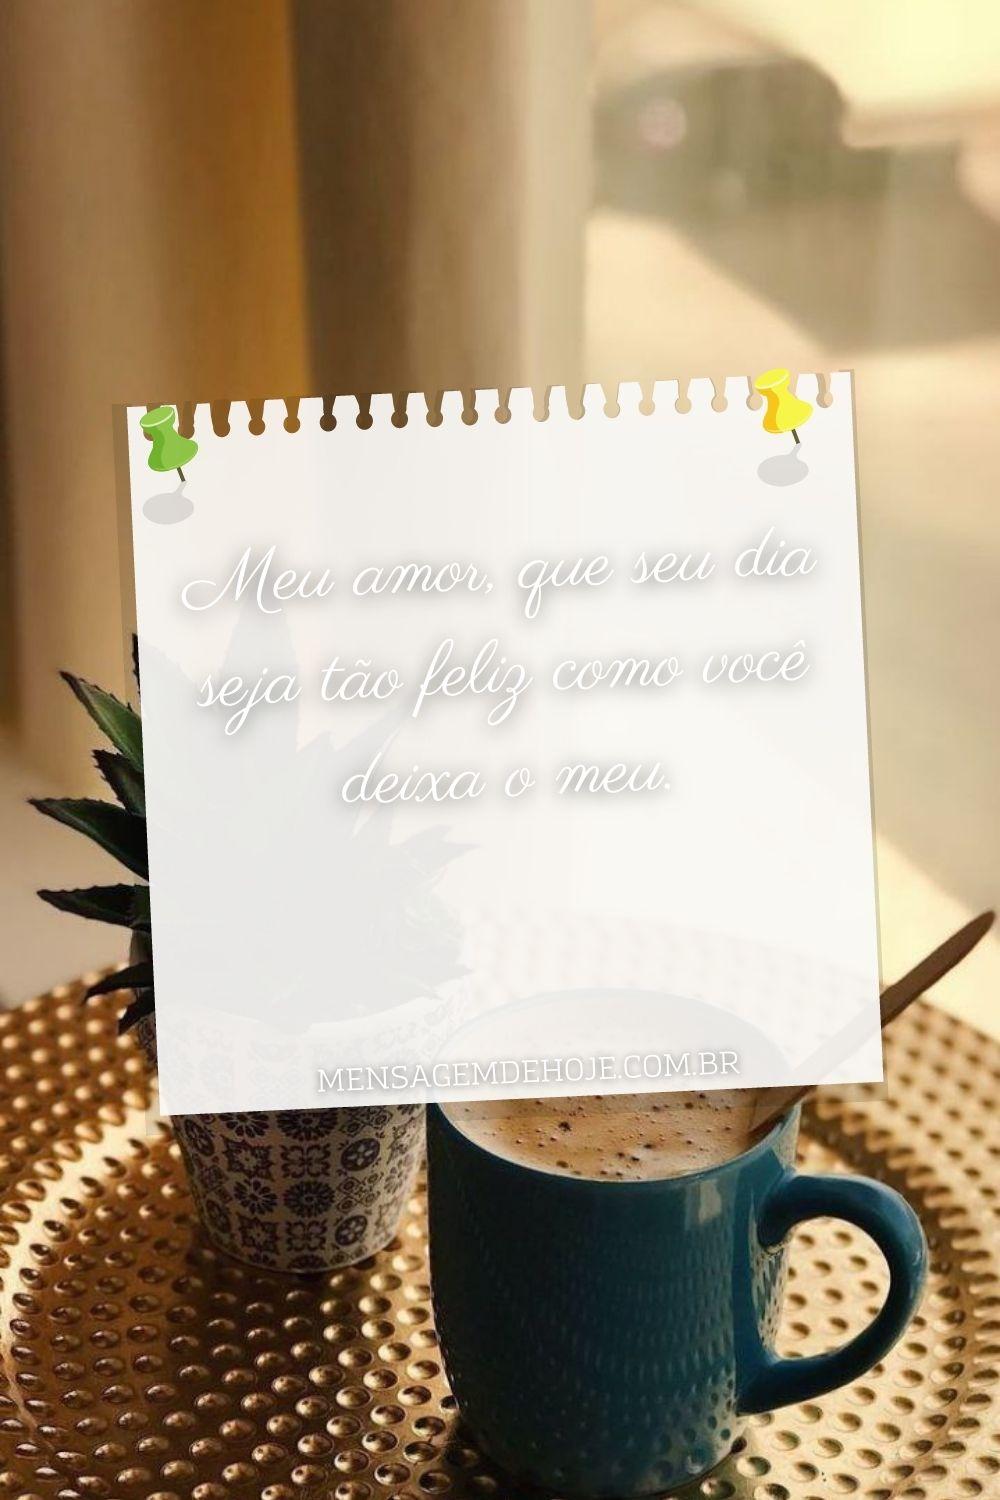 Meu amor, que seu dia
seja tão feliz como você
deixa o meu.
MENSAGEMDEHOJE.COM.BR